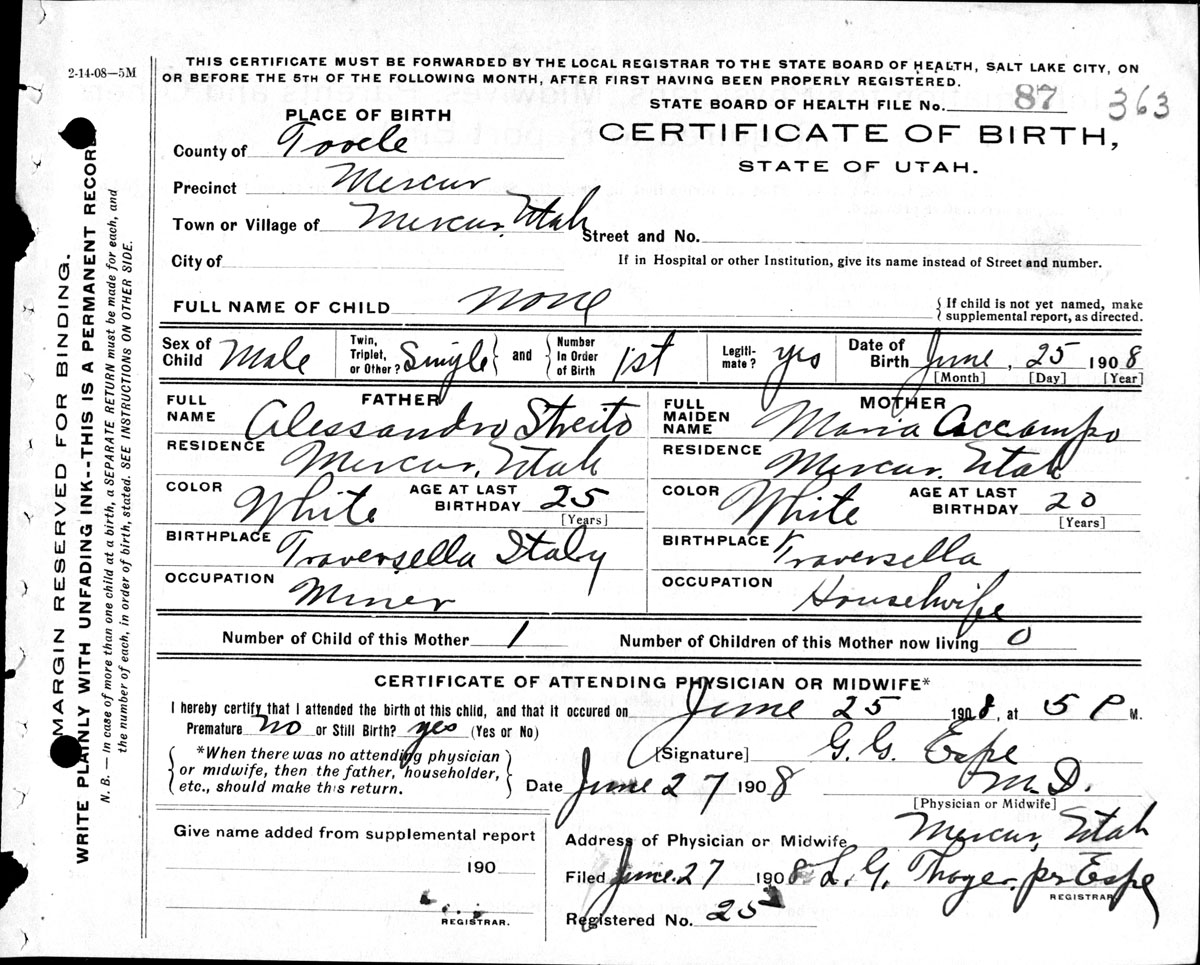 2-14-08—5M
THIS CERTIFICATE MUST BE FORWARDED BY THE LOCAL REGISTRAR TO THE STATE BOARD OF HEALTH, SALT LAKE CITY, ON
OR BEFORE THE 5TH OF THE FOLLOWING MONTH, AFTER FIRST HAVING BEEN PROPERLY REGISTERED.
STATE BOARD OF HEALTH FILE No. 87 363
PLACE OF BIRTH
CERTIFICATE OF BIRTH,
STATE OF UTAH.
County of Tooele
Precinct Mercur
Town or Village of Mercur, Utah Street and No.
City of If in Hospital or other Institution, give its name instead of Street and number.
FULL NAME OF CHILD None { If child is not yet named, make supplemental report, as directed.
Sex of Child Male Twin, Triplet, or Other? Single } and { Number In Order of Birth 1st Legiti-mate? yes Date of Birth June, 25 1908
[Month] [Day] [Year]
FATHER MOTHER
FULL NAME Alessandro Streito FULL MAIDEN NAME Maria Accampo
RESIDENCE Mercur, Utah RESIDENCE Mercur, Utah
COLOR White AGE AT LAST BIRTHDAY 25 [Years] COLOR White AGE AT LAST BIRTHDAY 20 [Years]
BIRTHPLACE Traversella Italy BIRTHPLACE Traversella
OCCUPATION Miner OCCUPATION Housewife
Number of Child of this Mother 1 Number of Children of this Mother now living 0
CERTIFICATE OF ATTENDING PHYSICIAN OR MIDWIFE*
I hereby certify that I attended the birth of this child, and that it occured on June 25 1908, at 5 P M.
Premature no or Still Birth? yes (Yes or No)
{ *When there was no attending physician or midwife, then the father, householder, etc., should make this return. }
[Signature] G. G. Espe
M.D.
Date June 27 1908
[Physician or Midwife]
Give name added from supplemental report
190
REGISTRAR.
Address of Physician or Midwife Mercur, Utah
Filed June 27 1908 L. G. Thayer, pr Espe
REGISTRAR
Registered No. 25
MARGIN RESERVED FOR BINDING.
WRITE PLAINLY WITH UNFADING INK--THIS IS A PERMANENT RECORD
N. B. — In case of more than one child at a birth, a SEPARATE RETURN must be made for each, and
the number of each, in order of birth, stated. SEE INSTRUCTIONS ON OTHER SIDE.